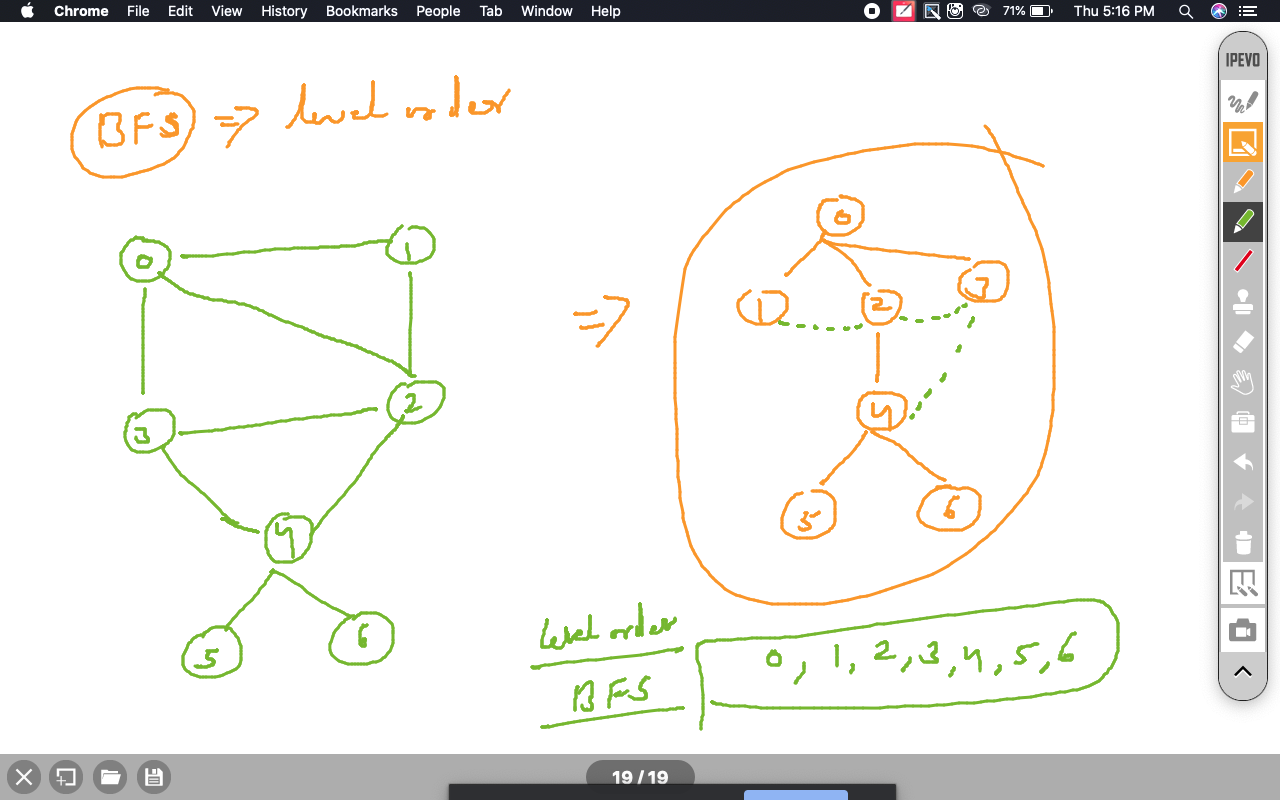 Chrome File Edit View History Bookmarks People Tab Window Help 71% Thu 5:16 PM
IPEVO
BFS => level order
0 1
3 2
4
5 6
=>
0
1 2 3
4
5 6
level order
BFS
0, 1, 2, 3, 4, 5, 6
19 / 19